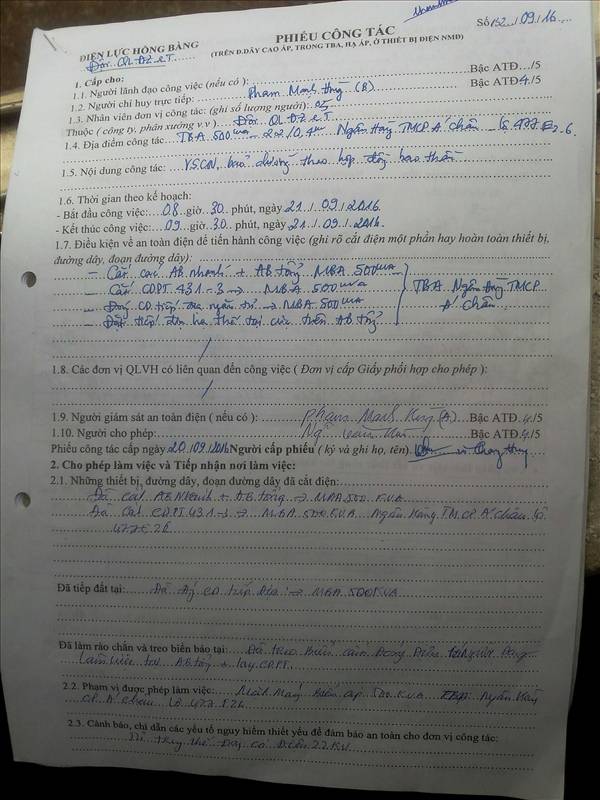 ĐIỆN LỰC HỒNG BÀNG
Đội QLĐZ & T
PHIẾU CÔNG TÁC
Số 152../09./16....
(TRÊN Đ.DÂY CAO ÁP, TRONG TBA, HẠ ÁP, Ở THIẾT BỊ ĐIỆN NMĐ)
1. Cấp cho:
1.1. Người lãnh đạo công việc (nếu có ): Bậc ATĐ.../5
1.2. Người chỉ huy trực tiếp: Phạm Mạnh Hùng (B) Bậc ATĐ4./5
1.3. Nhân viên đơn vị công tác: (ghi số lượng người): 05
Thuộc ( công ty, phân xưởng v.v ) Đội QLĐZ & T
1.4. Địa điểm công tác: TBA 500 KVA - 22/0,4 Ngân Hàng TMCP Á Châu lộ 477 E2.6
1.5. Nội dung công tác: VSCN, bảo dưỡng theo hợp đồng
1.6. Thời gian theo kế hoạch:
- Bắt đầu công việc: 08 giờ 30 phút, ngày 21 / 09 / 2016
- Kết thúc công việc: 09 giờ 30 phút, ngày 21 / 09 / 2016
1.7. Điều kiện về an toàn điện để tiến hành công việc (ghi rõ cắt điện một phần hay hoàn toàn thiết bị,
đường dây, đoạn đường dây):
- Cắt các AB nhánh + AB tổng MBA 500 KVA
- Cắt CDPT 431-3 → MBA 500 KVA
- Đóng CD tiếp địa → MBA 500 KVA
- Đặt tiếp hạ thế tại trên AB tổng
TBA Ngân hàng TMCP
Á Châu
1.8. Các đơn vị QLVH có liên quan đến công việc ( Đơn vị cấp Giấy phối hợp cho phép ):
1.9. Người giám sát an toàn điện ( nếu có ): Phạm Mạnh Hùng (A) Bậc ATĐ.4/5
1.10. Người cho phép: Bậc ATĐ.4/5
Phiếu công tác cấp ngày 20/09/2016 Người cấp phiếu ( ký và ghi họ, tên)
2. Cho phép làm việc và Tiếp nhận nơi làm việc:
2.1. Những thiết bị, đường dây, đoạn đường dây đã cắt điện:
Đã cắt AB Nhánh + AB tổng → MBA 500 KVA
Đã Cắt CDPT 431-3 → MBA 500 KVA Ngân Hàng TMCP Á Châu lộ
477 E 26
Đã tiếp đất tại: Đã CD tiếp địa → MBA 500 KVA
Đã làm rào chắn và treo biển báo tại: Đã treo Biển cấm Đóng Điện Người Đang
Làm Việc tại AB tổng + tay CDPT
2.2. Phạm vi được phép làm việc: 500 KVA Ngân Hàng
CP Á Châu Lộ 477 E26
2.3. Cảnh báo, chỉ dẫn các yếu tố nguy hiểm thiết yếu để đảm bảo an toàn cho đơn vị công tác:
Điện 22 KV